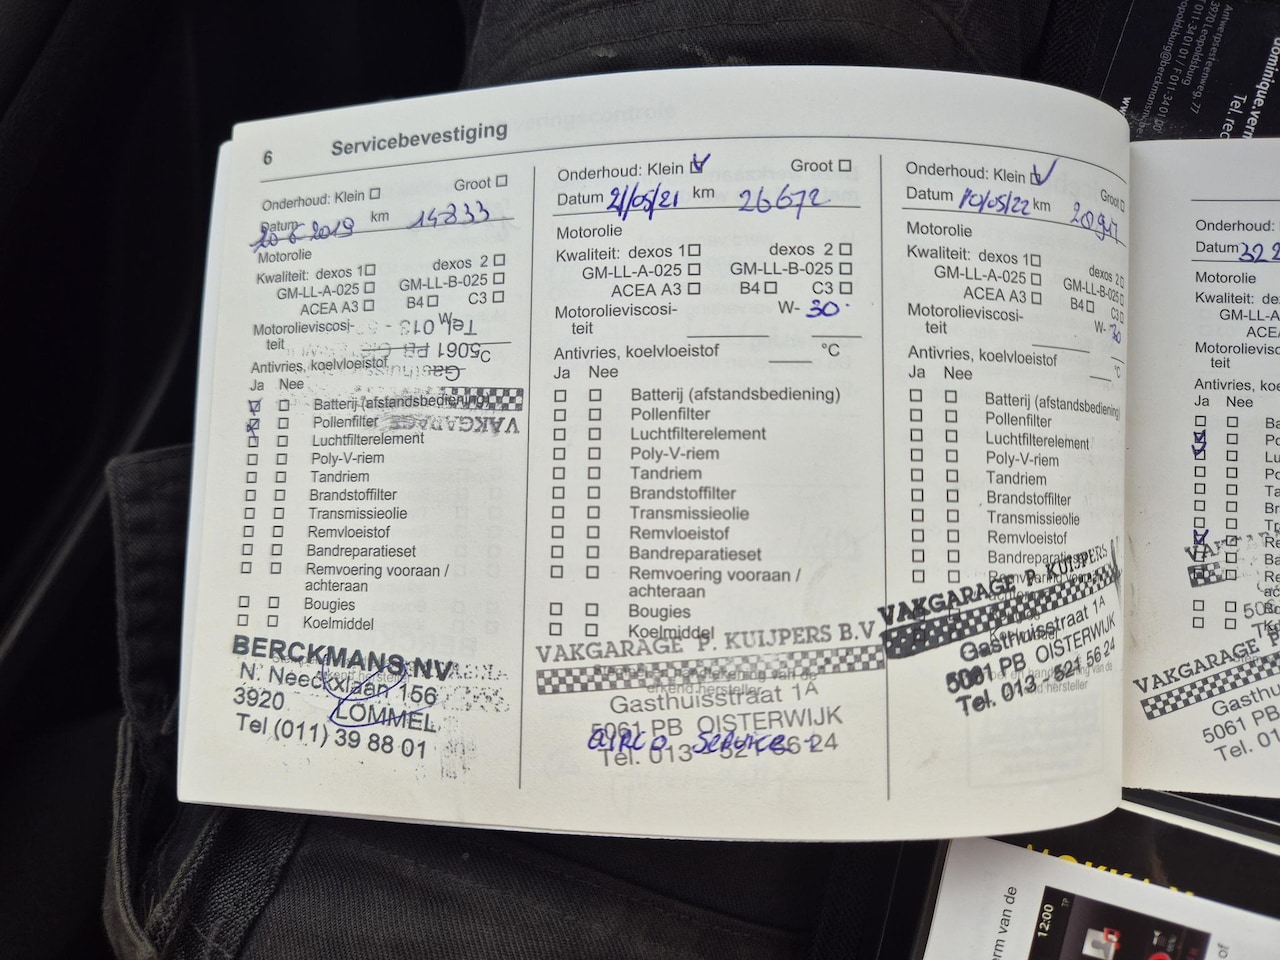 6 Servicebevestiging
Onderhoud: Klein Groot
Datum 20 6 2019 km 14833
Motorolie
Kwaliteit: dexos 1 dexos 2
GM-LL-A-025 GM-LL-B-025
ACEA A3 B4 C3
Motorolieviscosi-
teit
Tel. 013
5061 PB
Antivries, koelvloeistof °C
Ja Nee
Batterij (afstandsbediening)
Pollenfilter
VAKGARAGE
Luchtfilterelement
Poly-V-riem
Tandriem
Brandstoffilter
Transmissieolie
Remvloeistof
Bandreparatieset
Remvoering vooraan /
achteraan
Bougies
Koelmiddel
BERCKMANS NV
N. Neeckxlaan 156
3920 LOMMEL
Tel (011) 39 88 01
Onderhoud: Klein Groot
Datum 21/05/21 km 26672
Motorolie
Kwaliteit: dexos 1 dexos 2
GM-LL-A-025 GM-LL-B-025
ACEA A3 B4 C3
Motorolieviscosi- W- 30
teit
Antivries, koelvloeistof °C
Ja Nee
Batterij (afstandsbediening)
Pollenfilter
Luchtfilterelement
Poly-V-riem
Tandriem
Brandstoffilter
Transmissieolie
Remvloeistof
Bandreparatieset
Remvoering vooraan /
achteraan
Bougies
Koelmiddel
VAKGARAGE P. KUIJPERS B.V
erkend hersteller
Gasthuisstraat 1A
5061 PB OISTERWIJK
airco service
Tel. 013 - 521 56 24
Onderhoud: Klein Groot
Datum 10/05/22 km 28917
Motorolie
Kwaliteit: dexos 1 dexos 2
GM-LL-A-025 GM-LL-B-025
ACEA A3 B4 C3
Motorolieviscosi- W- 30
teit
Antivries, koelvloeistof °C
Ja Nee
Batterij (afstandsbediening)
Pollenfilter
Luchtfilterelement
Poly-V-riem
Tandriem
Brandstoffilter
Transmissieolie
Remvloeistof
Bandreparatieset
Remvoering
VAKGARAGE P. KUIJPERS
Gasthuisstraat 1A
5061 PB OISTERWIJK
Tel. 013 521 56 24
hersteller
Onderh
Datum 322
Motorolie
Kwaliteit: de
GM-LL-A
ACE
Motorolievisc
teit
Antivries, koe
Ja Nee
Ba
Po
Lu
Po
Ta
Br
Tr
Re
Ba
VAKGARAGE P
Gasthu
5061 PB
Tel. 01
Antwerpsesteenweg, 77
3970 Leopoldsburg
T 011-34 01 01 / F 011-34 01 00
opoldsburg@berckmansnv.be
www
dominique.verm
Tel. rec
MOKKA X
12:00
TP
erm van de
of